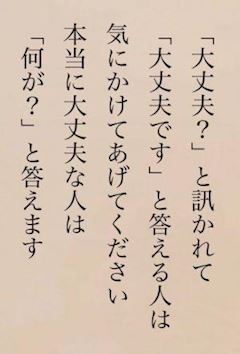 「大丈夫?」と訊かれて
「大丈夫です」と答える人は
気にかけてあげてください
本当に大丈夫な人は
「何が?」と答えます